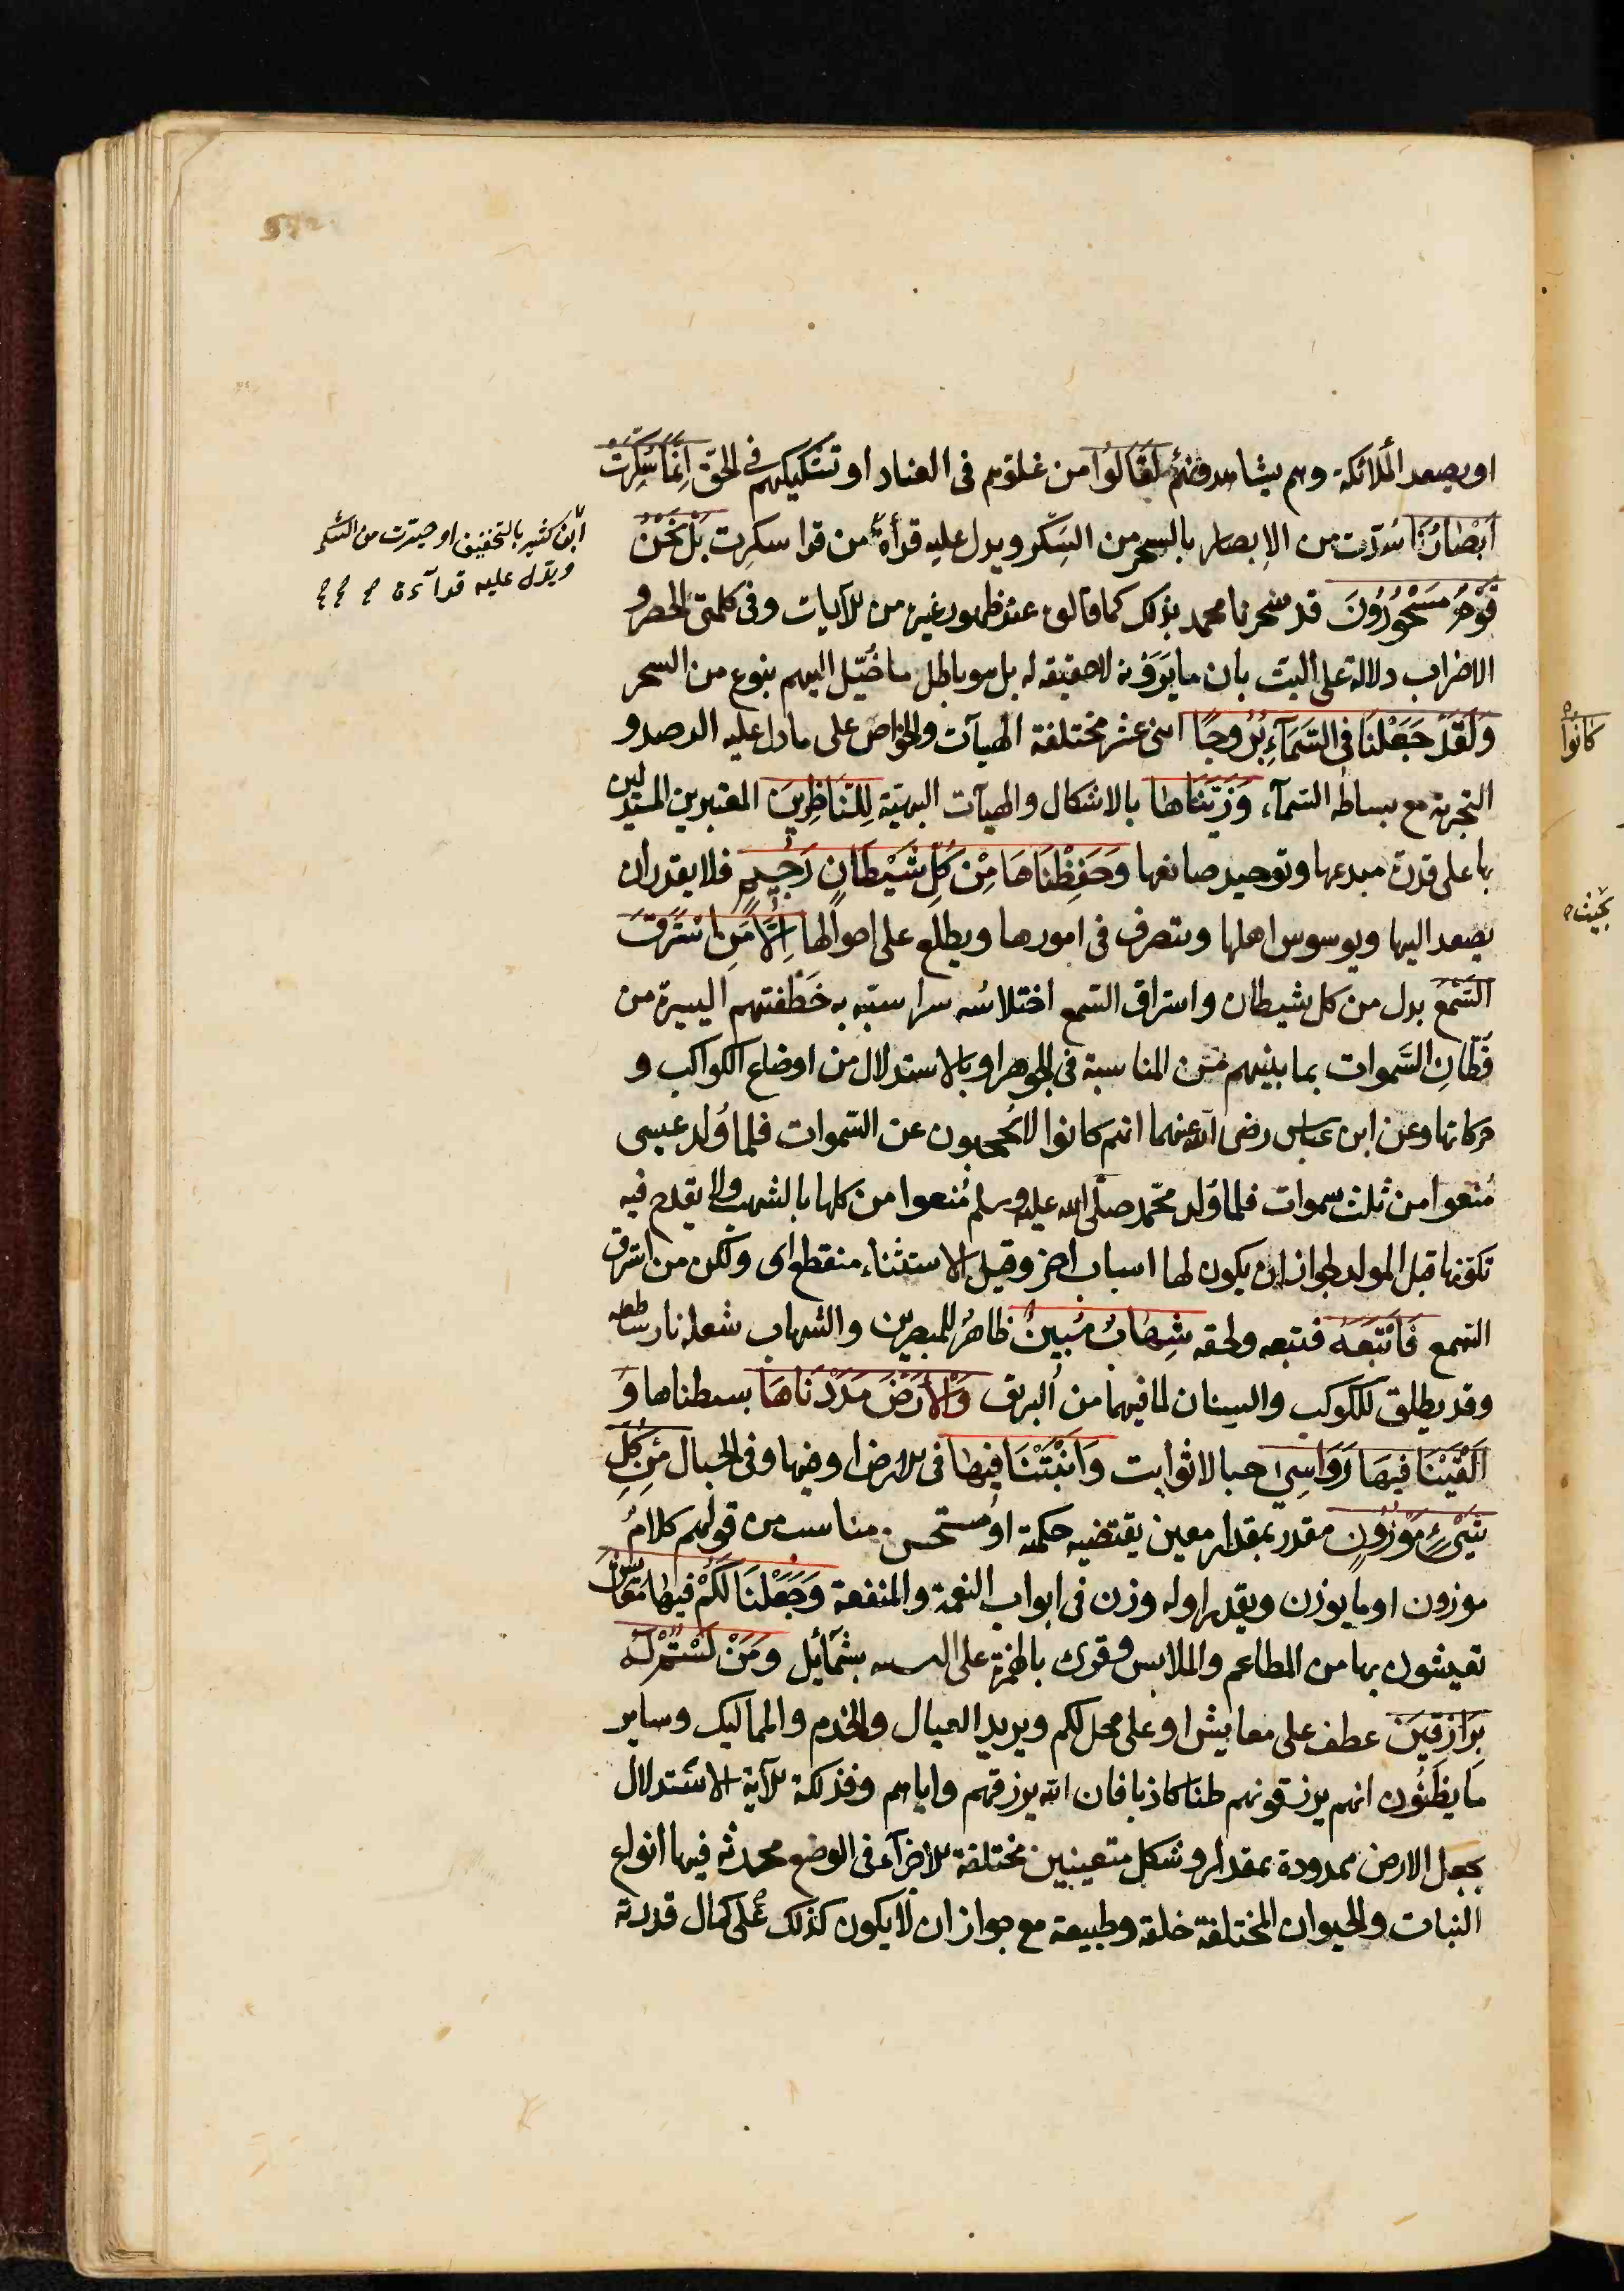 او يصعد الملائكة وهم يشاهدونهم لَقَالُوا من غلوهم فى العناد او تشكيكهم فى الحق اِنَّمَا سُكِّرَتْ
اَبْصَارُنَا سُدّت من الابصار بالسحر من السِّكر ويدل عليه قرأة من قرا سكِرت بَلْ نَحْنُ
قَوْمٌ مَسْحُورُونَ قد سحرنا محمد بذلك كما قالوه عند ظهور غيره من الآيات وفى كلمتى الحصر و
الاضراب دلالة على البت بان ما يَرَوْنه لا حقيقة له بل هو باطل ما خُيّل اليهم بنوع من السحر
وَلَقَدْ جَعَلْنَا فى السَّمَآءِ بُرُوجًا اثنى عشر مختلفة الهيآت والخواص على ما دل عليه الرصد و
التجربة مع بساطة السّمآء وَزَيَّنَّاهَا بالاشكال والهيآت البهيّة لِلنَّاظِرِينَ المعتبرين المستدلين
بها على قدرة مبدعها وتوحيد صانعها وَحَفِظْنَاهَا مِنْ كُلِّ شَيْطَانٍ رَجِيمٍ فلا يقدر ان
يصعد اليها ويوسوس اهلها ويتصرف فى امورها ويطلع على احوالها اِلَّا مَنِ اسْتَرَقَ
السَّمْعَ بدل من كل شيطان واستراق السّمع اختلاسُه سرا شبّه به خَطْفتهم اليسيرة من
قُطّانِ السَّموات بما بينهم من المناسبة فى الجوهر او بالاستدلال من اوضاع الكواكب و
حركاتها وعن ابن عباس رضى الله عنهما انهم كانوا لا يُحجبون عن السّموات فلما وُلد عيسى
مُنعوا من ثلث سموات فلما وُلد محمّد صلّى الله عليه وسلم مُنعوا من كلها بالشهب ولا يقدح فيه
تكوّنها قبل المولد لجواز ان يكون لها اسباب اخر وقيل الاستثناء منقطع اى ولكن من استرق
السّمع فَاَتْبَعَهُ فتبعه ولحقه شِهَابٌ مُبِينٌ ظاهرٌ للمبصرين والشّهاب شعلة نار ساطعه
وقد يطلق للكوكب والسنان لما فيهما من البريق وَالْاَرْضَ مَدَدْنَاهَا بسطناها وَ
اَلْقَيْنَا فِيهَا رَوَاسِيَ جبالا ثوابت وَاَنْبَتْنَا فِيهَا فى الارض او فيها وفى الجبال مِنْ كُلِّ
شَيْءٍ مَوْزُونٍ مقدر بمقدار معين يقتضيه حكمته او مستحسن مناسب من قولهم كلامٌ
موزون او ما يوزن ويقدر او له وزن فى ابواب النعمة والمنفعة وَجَعَلْنَا لَكُمْ فِيهَا مَعَايِشَ
تعيشون بها من المطاعم والملابس وقرئ بالهمزة على التشبيه بشمائيل وَمَنْ لَسْتُمْ لَهُ
بِرَازِقِينَ عطف على معايش او على محل لكم ويريد العيال والخدم والمماليك وساير
ما يظنّون انهم يرزقونهم ظنا كاذبا فان الله يرزقهم واياهم وفذلكة الآية الاستدلال
بجعل الارض ممدودة بمقدار وشكل متعينين مختلفة الاجزآء فى الوضع محدثة فيها انواع
النبات والحيوان المختلفة خلقة وطبيعة مع جواز ان لا يكون كذلك على كمال قدرته
ابن كثير بالتخفيف او حيّرت من السّكر
ويدل عليه قرآءة
كانوا
بحيث